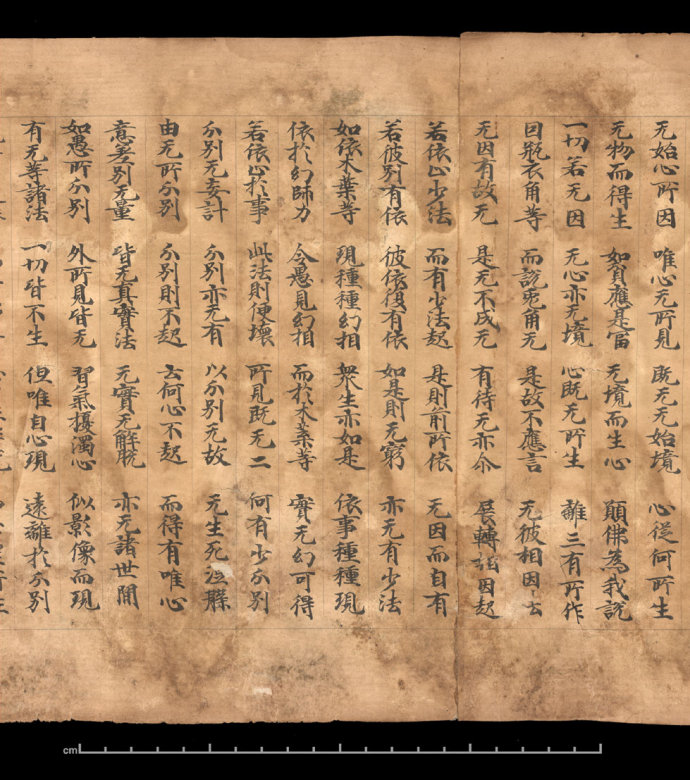 无始心所因 唯心无所見 既无无始境 心從何所生
无物而得生 如貧應是富 无境而生心 願佛為我說
一切若无因 无心亦无境 心既无所生 離三有所作
因瓶衣角等 而說兎角无 是故不應言 无彼相因法
无因有故无 是无不成无 有待无亦尒 展轉相因起
若依止少法 而有少法起 是則前所依 无因而自有
若彼別有依 彼依復有依 如是則无窮 亦无有少法
如依木葉等 現種種幻相 衆生亦如是 依事種種現
依於幻師力 令愚見幻相 而於木葉等 實无幻可得
若依止於事 此法則便壞 所見既无二 何有少分別
分別无妄計 分別亦无有 以分別无故 无生死涅槃
由无所分別 分別則不起 云何心不起 而得有唯心
意差別无量 皆无真實法 无實无解脫 亦无諸世間
如愚所分別 外所見皆无 習氣擾濁心 似影像而現
有无等諸法 一切皆不生 但唯自心現 遠離於分別
cm